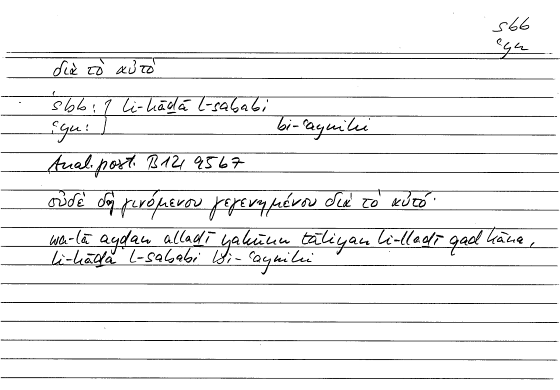 sbb
ʿyn
διὰ τὸ αὐτό
sbb : } li-hāḏā l-sababi
ʿyn : } bi-ʿaynihi
Anal. post. B 12, 95b7
οὐδὲ δὴ γινόμενον γεγενημένου διὰ τὸ αὐτό·
wa-lā ayḍan allaḏī yakūnu tāliyan li-llaḏī qad kāna,
li-hāḏā l-sababi bi-ʿaynihi